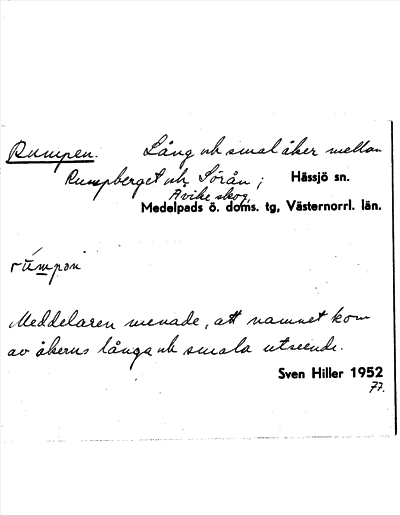 Rumpen. Lång och smal åker mellan
Rumpberget och Sörån; Hässjö sn.
Avike skog,
Medelpads ö. doms. tg, Västernorrl. län.
rúmpən
Meddelaren menade, att namnet kom
av åkerns långa och smala utseende.
Sven Hiller 1952
77.